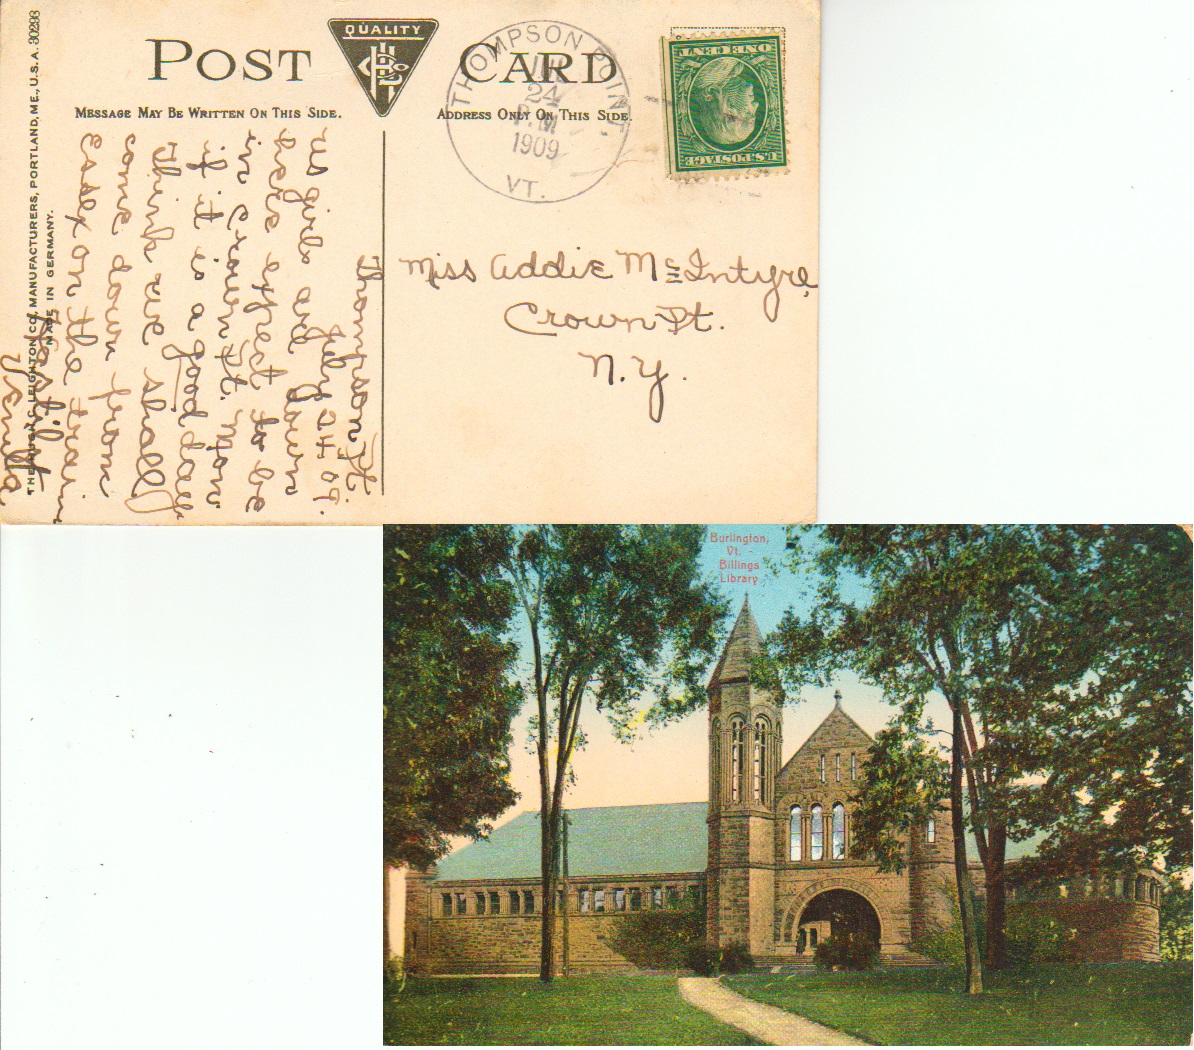 THE HUGH C. LEIGHTON CO., MANUFACTURERS, PORTLAND, ME., U.S.A. 30293
MADE IN GERMANY.
POST CARD
QUALITY
MESSAGE MAY BE WRITTEN ON THIS SIDE.
ADDRESS ONLY ON THIS SIDE.
THOMPSON POINT.
JUL
24
P.M.
1909
VT.
U.S. POSTAGE
ONE CENT
Thompson Pt.
July 24 09.
us girls are down
here expect to be
in Crown Pt. Mon
if it is a good day
Think we shall
come down from
Essex on the train
Miss Addie McIntyre,
Crown Pt.
N.Y.
Burlington,
Vt.
Billings
Library